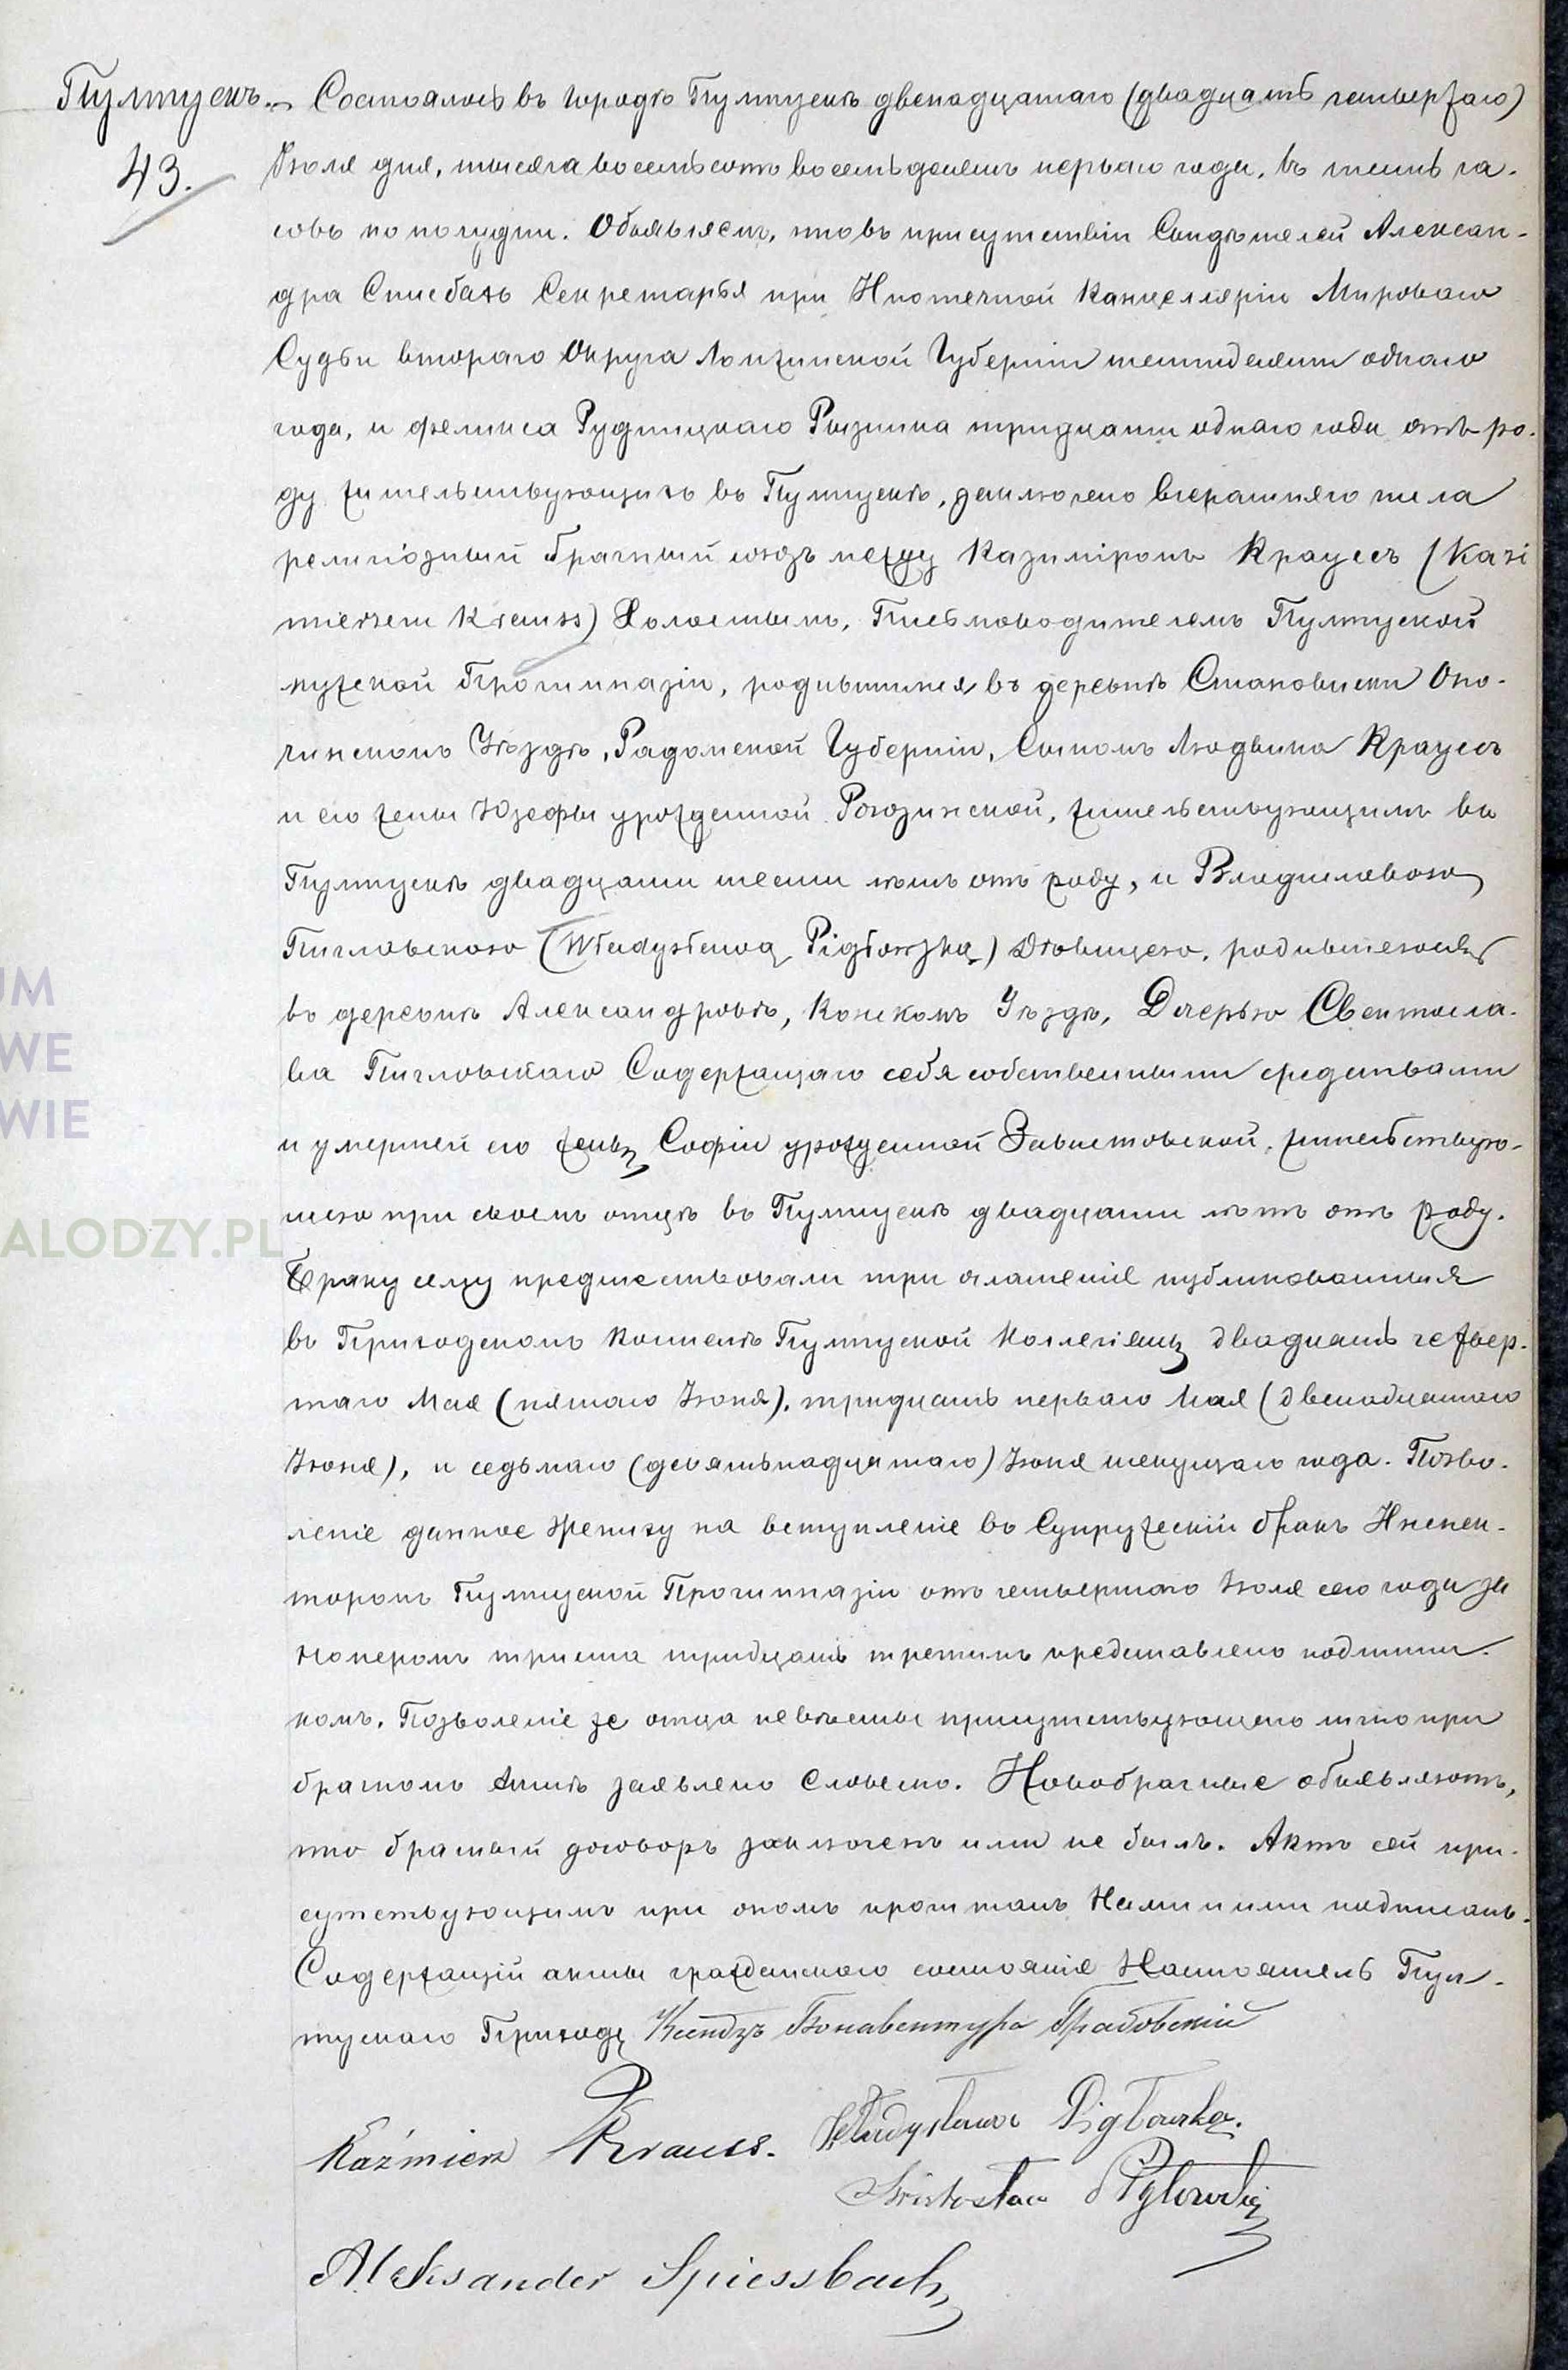 Пултускъ. Состоялось въ городѣ Пултускѣ двенадцатаго (двадцать четвертаго)
43.
Іюля дня, тысяча восемьсотъ восемьдесятъ перваго года, въ шесть ча-
совъ по полудни. Объявляемъ, что въ присутствіи Свидѣтелей Алексан-
дра Списбахъ Секретарья при Ипотечной Канцеляріи Мироваго
Судьи втораго Округа Ломжинской Губерніи шестидесяти одного
года, и Феликса Рудницкаго тридцати одного года отъ ро-
ду жительствующихъ въ Пултускѣ, заключено вчерашняго числа
религіозный брачный союзъ между Казиміромъ Крауссъ (Kazi
mierzem Krauss) Холостымъ, Письмоводителемъ Пултуской
мужской Прогимназіи, родившимся въ деревнѣ Становиски Опо-
чинскомъ Уѣздѣ, Радомской Губерніи, Сыномъ Людвика Крауссъ
и его жены Юзефы урожденной Рогозинской, жительствующимъ въ
Пултускѣ двадцати шести лѣтъ отъ роду, и Владиславою
Пигловскою (Władysławą Pigłowską) Дѣвицею, родившеюся
въ деревнѣ Александровѣ, Конскомъ Уѣздѣ, Дочерью Свентосла-
ва Пигловскаго Содержащаго себя собственными средствами
и умершей его жены Софіи урожденной Завистовской, жительствую-
щею при своемъ отцѣ въ Пултускѣ двадцати лѣтъ отъ роду.
Браку сему предшествовали три оглашенія публикованныя
въ Приходскомъ Костелѣ Пултуской Коллегіяты двадцать четвер-
таго Мая (пятаго Іюня), тридцать перваго Мая (двенадцатаго
Іюня), и седьмаго (девятьнадцатаго) Іюня текущаго года. Позво-
леніе данное Жениху на вступленіе въ Супружескій бракъ Инспек-
торомъ Пултуской Прогимназіи отъ четвертаго Іюля сего года за
Номеромъ триста тридцать третимъ представлено подлинни-
комъ. Позволеніе же отца невѣсты присутствующаго лично при
брачномъ Актѣ заявлено Словесно. Новобрачные объявляютъ,
что брачный договоръ заключенъ ими не былъ. Актъ сей при-
сутствующимъ при ономъ прочитанъ Нами и ими подписанъ.
Содержащій акты гражданскаго состоянія Настоятель Пул-
тускаго Прихода Ксендзъ Бонавентура Грабовскій
Kaźmierz Krauss. Władysława Pigłowska.
Świętosław Pigłowski
Aleksander Spiessbach